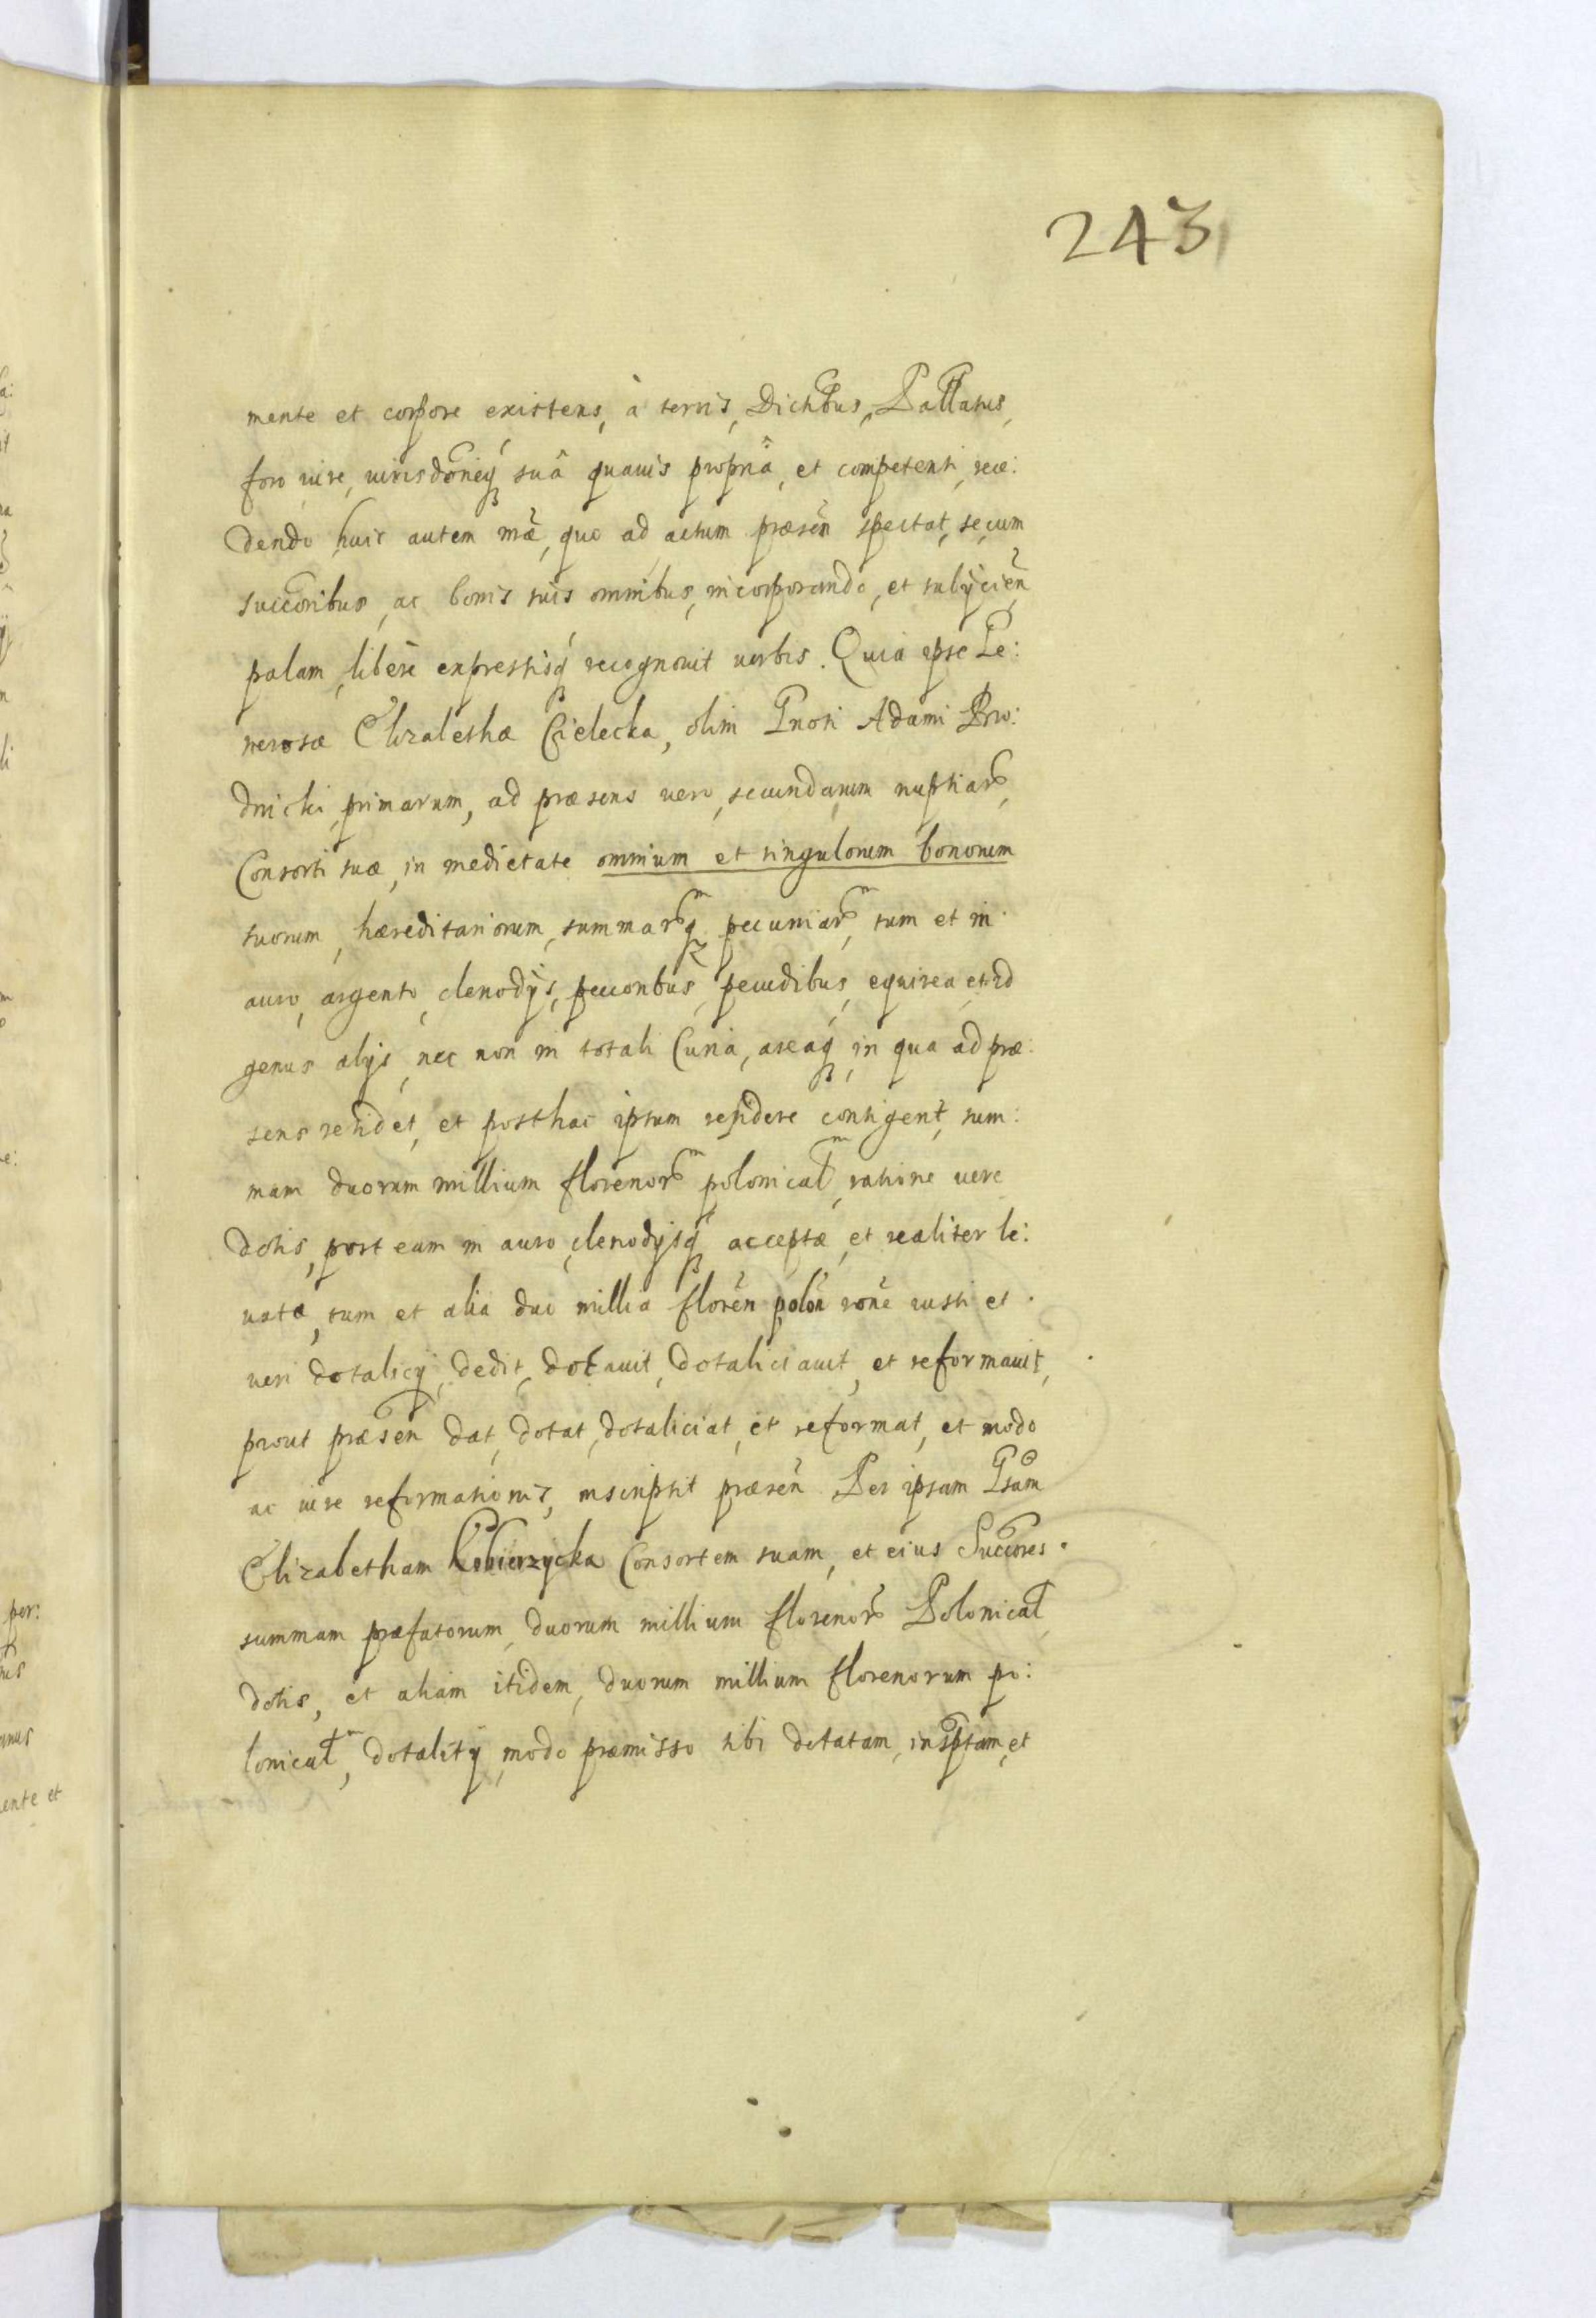 243
mente et corpore existens, à terris, Dictibus, Pallatus,
foro iure, iurisdōneq sua quauis propriâ, et competenti, rece:
dendo huic autem mãe, quo ad actum præsēn spectat, secum
succoribus, ac bonis suis omnibus, incorporando, et subÿcien
palam, liberè expressisq recognouit uerbis. Quia ipse Ge:
nerosæ Elizabethæ Cielecka, olim Gnosi Adami Bro:
dnicki, primarum, ad præsens uero, secundarum nuptiar,
Consorti suæ, in medietate omnium et singulorum bonorum
suorum, hæreditariorum, summarq, pecuniar, tum et in
auro, argento, clenodÿs, peccoribus, pecudibus, equirea, et id
genus alÿs, nec non in totali Curia, areaq, in qua ad præ:
sens residet, et posthac ipsum residere contigerit, sum:
mam duorum millium florenor polonical, ratione uere
dotis, post eam in auro, clenodÿsq acceptæ, et realiter le:
uatæ, tum et alia duo millia florēn polōn rōne iusti et
ueri dotalicÿ, dedit, dotauit, dotaliciauit, et reformauit,
prout præsen dat, dotat, dotaliciat, et reformat, et modo
ac iure reformationis, inscripsit præsēn Per ipsam Gsam
Elizabetham Kobierzycka Consortem suam, et eius Succores
summam præfatorum, duorum millium florenor Polonical
dotis, et aliam itidem, duorum millium florenorum po:
lonical, dotalitÿ, modo præmisso sibi dotatam, insptam, et